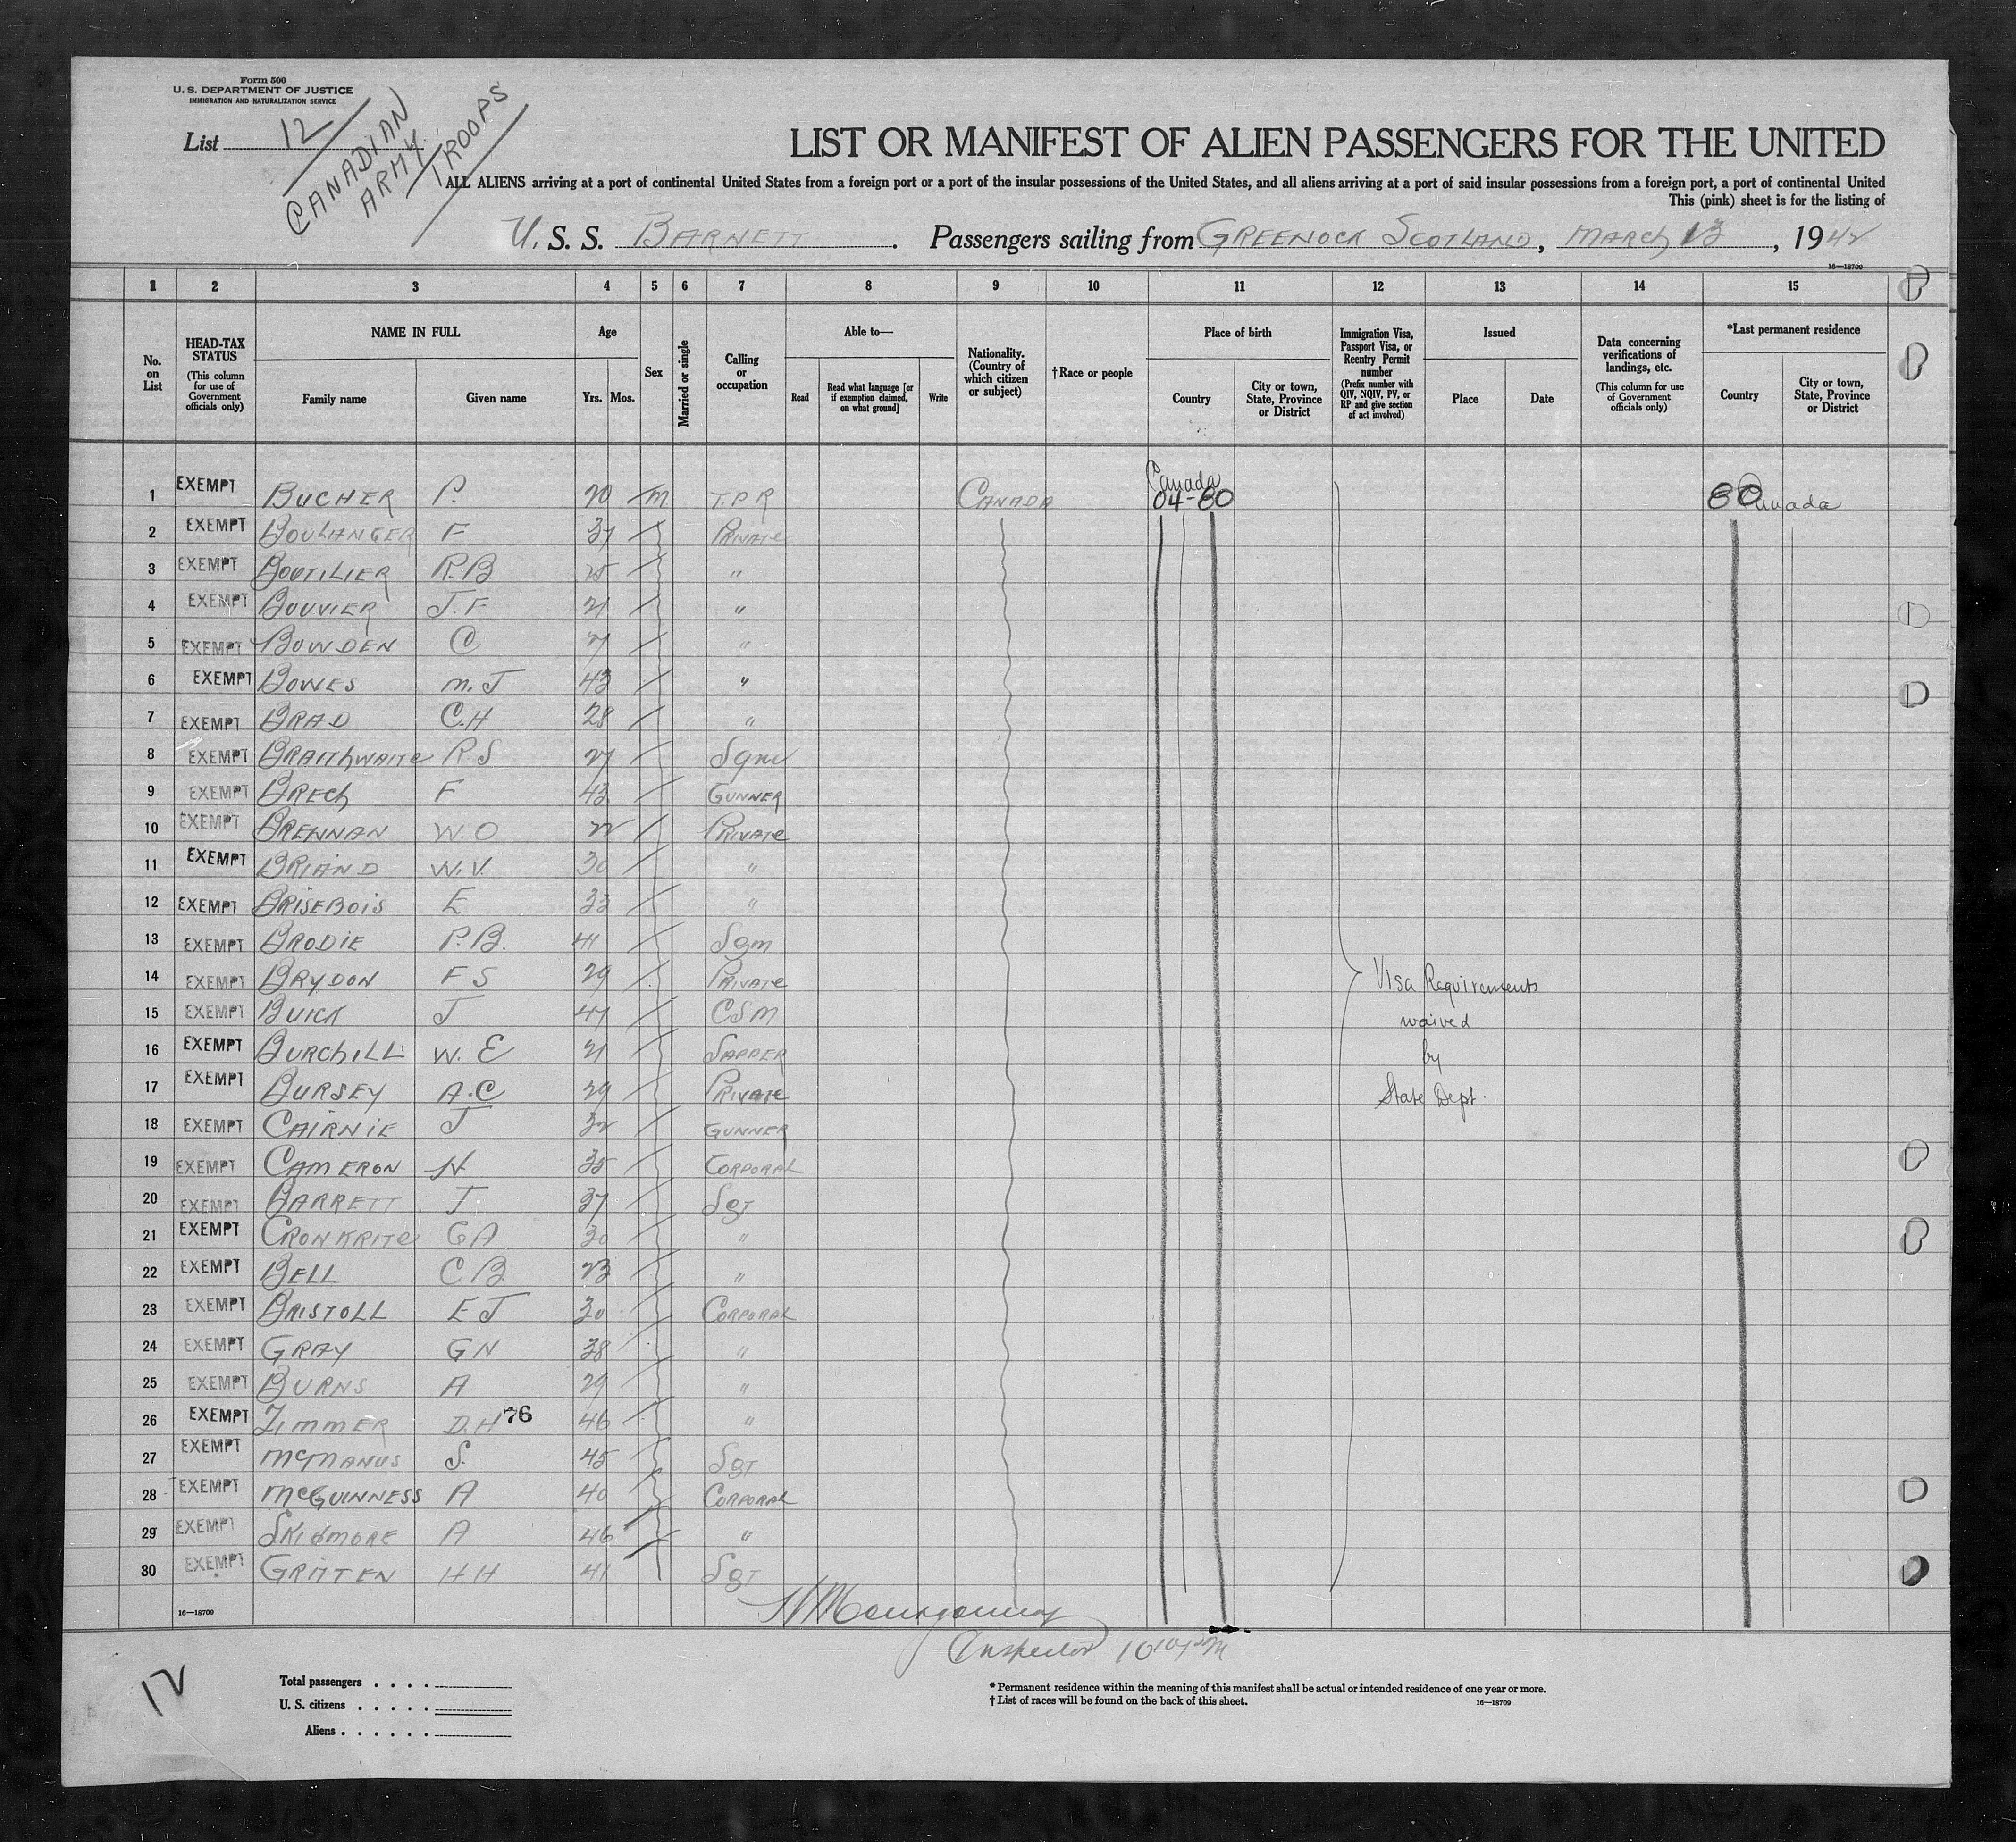 Form 500
U. S. DEPARTMENT OF JUSTICE
IMMIGRATION AND NATURALIZATION SERVICE
List 12
CANADIAN
ARMY TROOPS
LIST OR MANIFEST OF ALIEN PASSENGERS FOR THE UNITED
ALL ALIENS arriving at a port of continental United States from a foreign port or a port of the insular possessions of the United States, and all aliens arriving at a port of said insular possessions from a foreign port, a port of continental United
This (pink) sheet is for the listing of
U. S. S. BARNETT. Passengers sailing from GREENOCK SCOTLAND, MARCH 13, 1942
16—18709
1 2 3 4 5 6 7 8 9 10 11 12 13 14 15
No. on List
HEAD-TAX STATUS (This column for use of Government officials only)
NAME IN FULL Family name Given name
Age Yrs. Mos.
Sex
Married or single
Calling or occupation
Able to— Read Read what language [or if exemption claimed, on what ground] Write
Nationality. (Country of which citizen or subject)
†Race or people
Place of birth Country City or town, State, Province or District
Immigration Visa, Passport Visa, or Reentry Permit number (Prefix number with QIV, NQIV, PV, or RP and give section of act involved)
Issued Place Date
Data concerning verifications of landings, etc. (This column for use of Government officials only)
*Last permanent residence Country City or town, State, Province or District
1 EXEMPT BUCHER P. 20 M T.P.R CANADA Canada 04-80 80 Canada
2 EXEMPT BOULANGER F 37 PRIVATE
3 EXEMPT BOUTILIER R.B 25 "
4 EXEMPT BOUVIER J.F 21 "
5 EXEMPT BOWDEN C "
6 EXEMPT BOWES M.J 43 "
7 EXEMPT BRAD C.H 28 "
8 EXEMPT BRAITHWAITE R S 27
9 EXEMPT BRECH F 43 GUNNER
10 EXEMPT BRENNAN W.O 22 PRIVATE
11 EXEMPT BRIAND W.V. 30 "
12 EXEMPT BRISEBOIS E 33 "
13 EXEMPT BRODIE P.B. 41 Sgm
14 EXEMPT BRYDON F S 29 PRIVATE
15 EXEMPT BUICK J 41 CSM
16 EXEMPT BURCHILL W. E 21 SAPPER
17 EXEMPT BURSEY A.C 29 PRIVATE
18 EXEMPT CAIRNIE J 32 GUNNER
19 EXEMPT CAMERON H 35 CORPORAL
20 EXEMPT BARRETT J 37 SGT
21 EXEMPT CRONKRITE G A 30 "
22 EXEMPT BELL C B 23 "
23 EXEMPT BRISTOLL E J 30 CORPORAL
24 EXEMPT GRAY G N 38 "
25 EXEMPT BURNS A 29 "
26 EXEMPT ZIMMER D.H 76 46 "
27 EXEMPT McMANUS S. 45 SGT
28 EXEMPT McGUINNESS A 40 CORPORAL
29 EXEMPT SKIDMORE A 46 "
30 EXEMPT H H 41 SGT
Visa Requirements
waived
by
State Dept.
16—18709
Montgomery
Inspector
12
Total passengers
U. S. citizens
Aliens
* Permanent residence within the meaning of this manifest shall be actual or intended residence of one year or more.
† List of races will be found on the back of this sheet. 16—18709